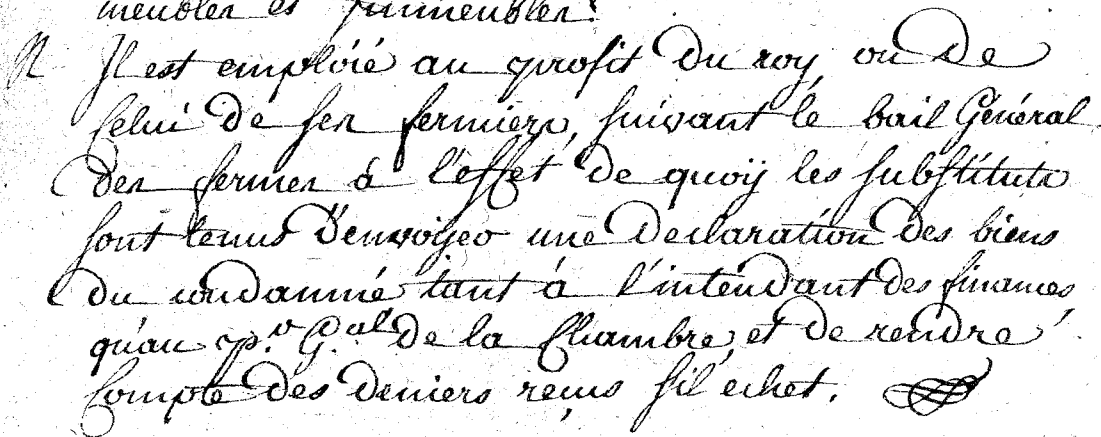 meubles et immeubles.
R Il est emploié au profit du roy ou de
celui de ses fermiers, suivant le bail Général
des fermes à l'effet de quoy les substituts
sont tenus d'envoyer une declaration des biens
du condamné tant à l'intendant des finances
qu'au p.r G.al de la Chambre, et de rendre
compte des deniers reçus s'il echet.